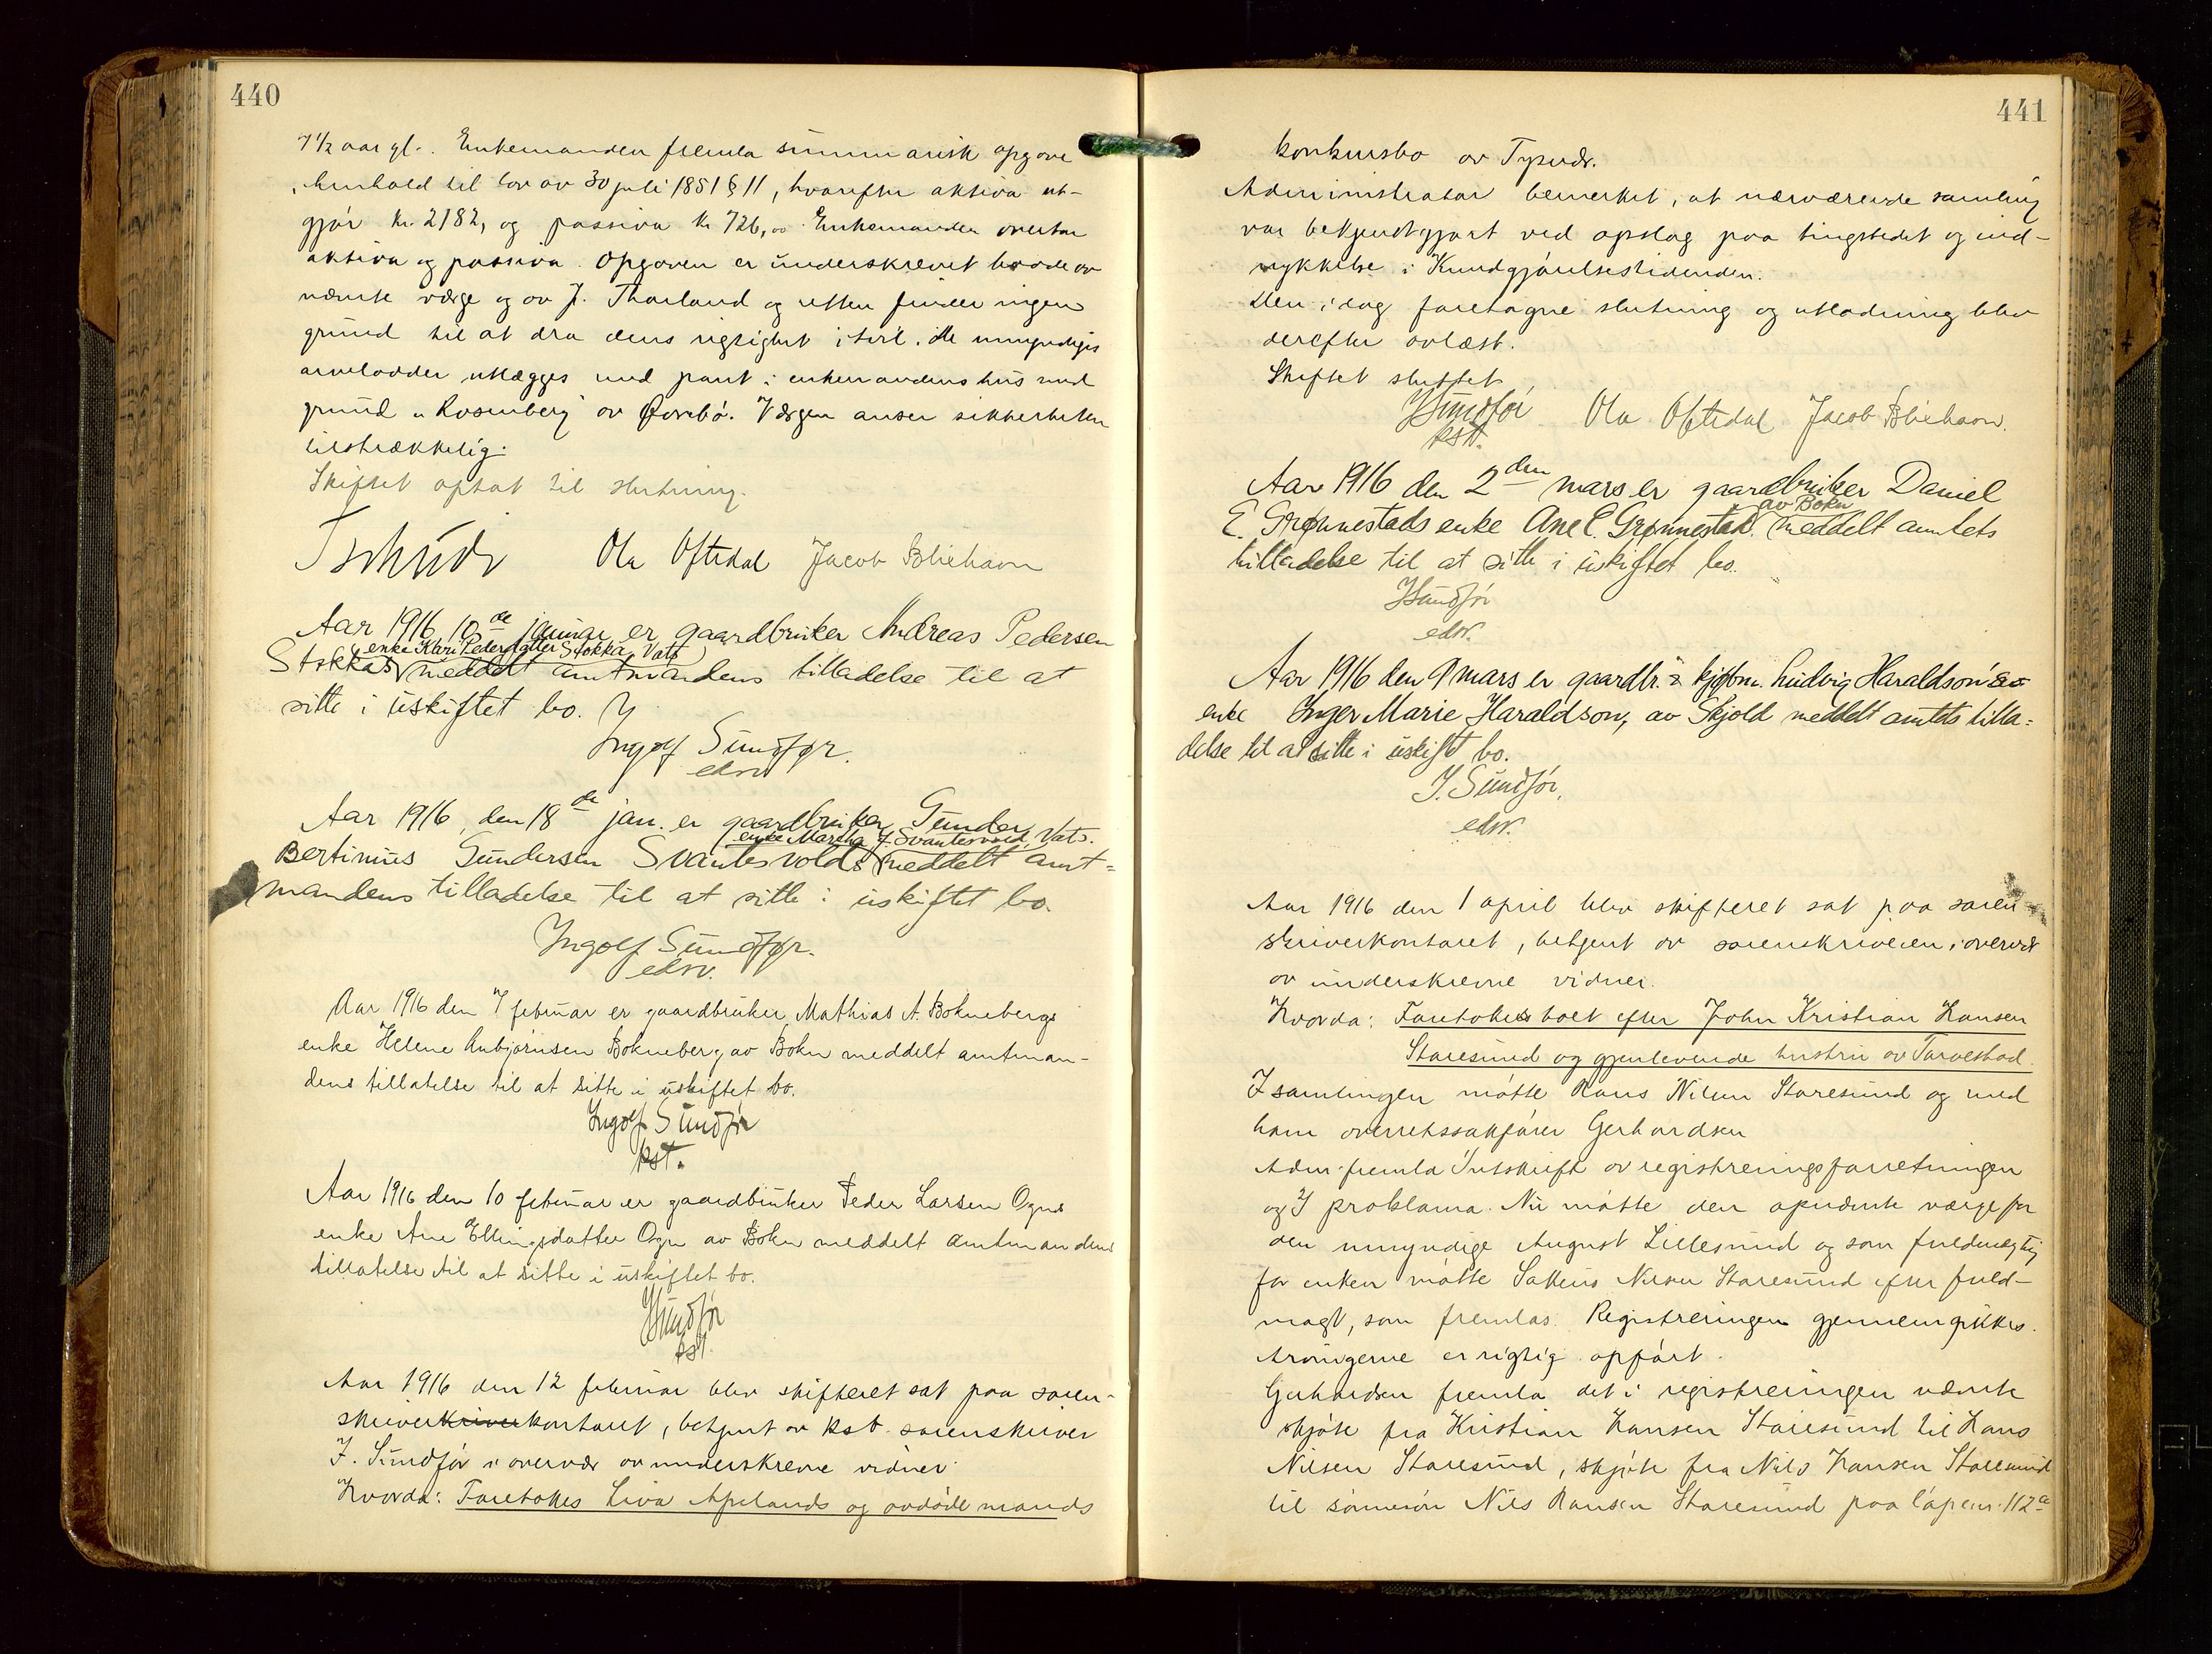 440
7 1/2 aar gl.. Enkemanden fremla summarisk opgave
i henhold til lov av 30 juli 1851 § 11, hvorefter aktiva ut-
gjør kr. 2182, og passiva kr 726,00. Enkemanden overtar
aktiva og passiva. Opgaven er underskrevet baade av
nævnte værge og av J. Thorland og retten finder ingen
grund til at dra dens rigtighet i tvil. De umyndiges
arvelodder utlægges med pant i enkemandens hus med
grund "Rosenberg" av . Værgen anser sikkerheten
tilstrækkelig.
Skiftet optat til slutning.
Tschudi Ola Oftedal Jacob Bliehavn
Aar 1916 10de januar er gaardbruker Andreas Pedersen
enke Kari Pedersdatter Stokka Vats
Stokkas meddelt amtmandens tilladelse til at
sitte i uskiftet bo.
Ingolf Sundfør.
edsv.
Aar 1916, den 18de jan. er gaardbruker Gunder
enke Martha J. Svantesvold, Vats.
Bertinius Gundersen Svantesvolds meddelt amt-
mandens tilladelse til at sitte i uskiftet bo.
Ingolf Sundfør.
edsv.
Aar 1916 den 7 februar er gaardbruker Mathias A. Boknebergs
enke Helene Anbjørnsen Bokneberg av Bokn meddelt amtman-
dens tillatelse til at sitte i uskiftet bo.
Ingolf Sundfør
kst.
Aar 1916 den 10 februar er gaardbruker Peder Larsen Ogns
enke Ane Ellingsdatter Ogn av Bokn meddelt amtmandens
tillatelse til at sitte i uskiftet bo.
I Sundfør
kst.
Aar 1916 den 12 februar blev skifteret sat paa soren-
skriverkriverkontoret, betjent av kst. sorenskriver
I. Sundfør i overvær av underskrevne vidner
Hvorda: Foretokes Liva Apelands og avdøde mands
441
konkursbo av Tysvær.
Administrator bemerket, at nærværende samling
var bekjendtgjort ved opslag paa tingstedet og ind-
rykkelse i Kundgjørelsestidenden.
Den i dag foretagne slutning og utlodning blev
derefter avlæst.
Skiftet sluttet
I Sundfør Ola Oftedal Jacob Bliehavn.
kst.
Aar 1916 den 2den mars er gaardbruker Daniel
av Bokn
E. Grønnestads enke Ane E. Grønnestad. meddelt amtets
tilladelse til at sitte i uskiftet bo.
I Sundfør
edsv.
Aar 1916 den 9 mars er gaardbr. & kjøbm. Ludvig Haraldson's
enke Inger Marie Haraldson, av Skjold meddelt amtets tilla-
delse til at sitte i uskift bo.
I. Sundfør,
edsv.
Aar 1916 den 1 april blev skifteret sat paa soren-
skriverkontoret, betjent av sorenskriveren i overvær
av underskrevne vidner.
Hvorda: Foretokes boet efter John Kristian Hansen
Staresund og gjenlevende hustru av Torvestad.
I samlingen møtte Hans Nilsen Staresund og med
ham overretssakfører Gerhardsen
Adm. fremla Utskrift av registreringsforretningen
og proklama. Nu møtte den opnævnte værge for
den umyndige August Lillesund og som fuldmægtig
for enken møtte Sakeus Nilsen Staresund efter fuld-
magt, som fremlas. Registreringen gjennemgikkes.
Arvingerne er rigtig opført.
Gerhardsen fremla det i registreringen nævnte
skjøte fra Kristian Hansen Staresund til Hans
Nilsen Staresund, skjøte fra Nils Hansen Staresund
til sønnesøn Nils Hansen Staresund paa løpenr. 112a